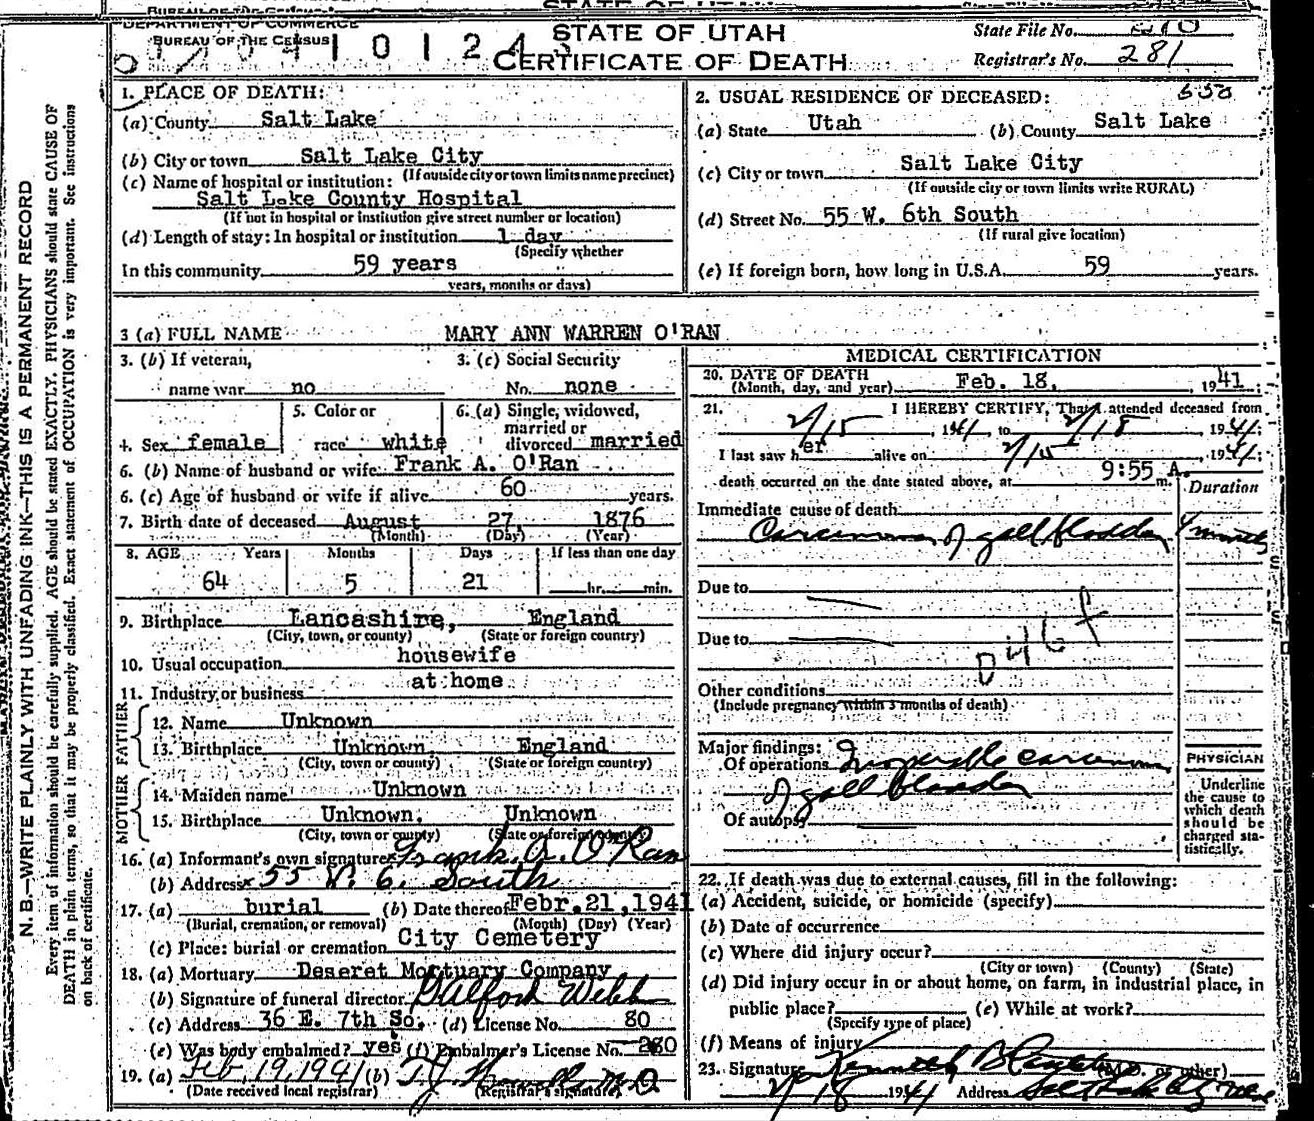 DEPARTMENT OF COMMERCE
BUREAU OF THE CENSUS
STATE OF UTAH
CERTIFICATE OF DEATH
State File No.
Registrar's No. 281
N. B.—WRITE PLAINLY WITH UNFADING INK—THIS IS A PERMANENT RECORD
Every item of information should be carefully supplied. AGE should be stated EXACTLY. PHYSICIANS should state CAUSE OF
DEATH in plain terms, so that it may be properly classified. Exact statement of OCCUPATION is very important. See instructions
on back of certificate.
1. PLACE OF DEATH:
(a) County Salt Lake
(b) City or town Salt Lake City
(If outside city or town limits name precinct)
(c) Name of hospital or institution:
Salt Lake County Hospital
(If not in hospital or institution give street number or location)
(d) Length of stay: In hospital or institution 1 day
(Specify whether
In this community 59 years
years, months or days)
2. USUAL RESIDENCE OF DECEASED:
(a) State Utah (b) County Salt Lake
(c) City or town Salt Lake City
(If outside city or town limits write RURAL)
(d) Street No. 55 W. 6th South
(If rural give location)
(e) If foreign born, how long in U.S.A. 59 years.
3 (a) FULL NAME MARY ANN WARREN O'RAN
3. (b) If veteran,
name war no
3. (c) Social Security
No. none
4. Sex female
5. Color or
race white
6. (a) Single, widowed,
married or
divorced married
6. (b) Name of husband or wife Frank A. O'Ran
6. (c) Age of husband or wife if alive 60 years.
7. Birth date of deceased August 27, 1876
(Month) (Day) (Year)
8. AGE Years Months Days If less than one day
64 5 21 hr. min.
9. Birthplace Lancashire, England
(City, town, or county) (State or foreign country)
10. Usual occupation housewife
11. Industry or business at home
FATHER
12. Name Unknown
13. Birthplace Unknown England
(City, town or county) (State or foreign country)
MOTHER
14. Maiden name Unknown
15. Birthplace Unknown. Unknown
(City, town or county) (State or foreign country)
16. (a) Informant's own signature Frank A. O'Ran
(b) Address 55 W. 6. South
17. (a) burial (b) Date thereof Febr. 21, 1941
(Burial, cremation, or removal) (Month) (Day) (Year)
(c) Place: burial or cremation City Cemetery
18. (a) Mortuary Deseret Mortuary Company
(b) Signature of funeral director Webb
(c) Address 36 E. 7th So. (d) License No. 80
(e) Was body embalmed? yes (f) Embalmer's License No. 280
19. (a) Feb. 19, 1941 (b) M.D.
(Date received local registrar) (Registrar's signature)
MEDICAL CERTIFICATION
20. DATE OF DEATH
(Month, day, and year) Feb. 18, 1941
21. I HEREBY CERTIFY, That I attended deceased from
2/15, 1941, to 2/18, 1941;
I last saw her alive on 2/15, 1941;
death occurred on the date stated above, at 9:55 A. m.
Duration
Immediate cause of death
Carcinoma of gall bladder 4 months
Due to
Due to
0464
Other conditions
(Include pregnancy within 3 months of death)
Major findings:
Of operations Inoperable carcinoma
of gall bladder
Of autopsy
PHYSICIAN
Underline
the cause to
which death
should be
charged sta-
tistically.
22. If death was due to external causes, fill in the following:
(a) Accident, suicide, or homicide (specify)
(b) Date of occurrence
(c) Where did injury occur?
(City or town) (County) (State)
(d) Did injury occur in or about home, on farm, in industrial place, in
public place? (e) While at work?
(Specify type of place)
(f) Means of injury
23. Signature Kenneth B. (M.D. or other)
2/18 1941 Address Salt Lake City Utah